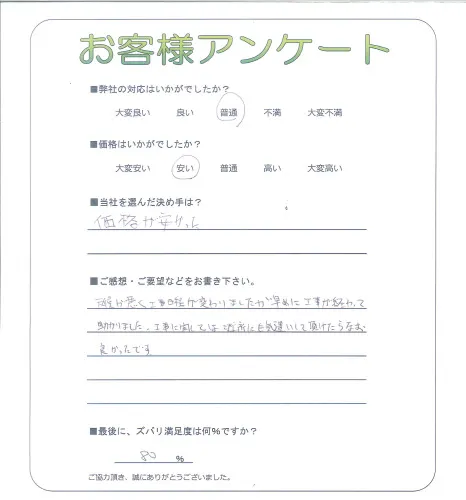 お客様アンケート
■弊社の対応はいかがでしたか？
大変良い 良い 普通 不満 大変不満
■価格はいかがでしたか？
大変安い 安い 普通 高い 大変高い
■当社を選んだ決め手は？
価格が安かった
■ご感想・ご要望などをお書き下さい。
悪く工事日程が変わりましたが早めに工事が終わって
助かりました。工事に関しては近所にも気遣いして頂けたらなお
良かったです
■最後に、ズバリ満足度は何%ですか？
80 %
ご協力頂き、誠にありがとうございました。